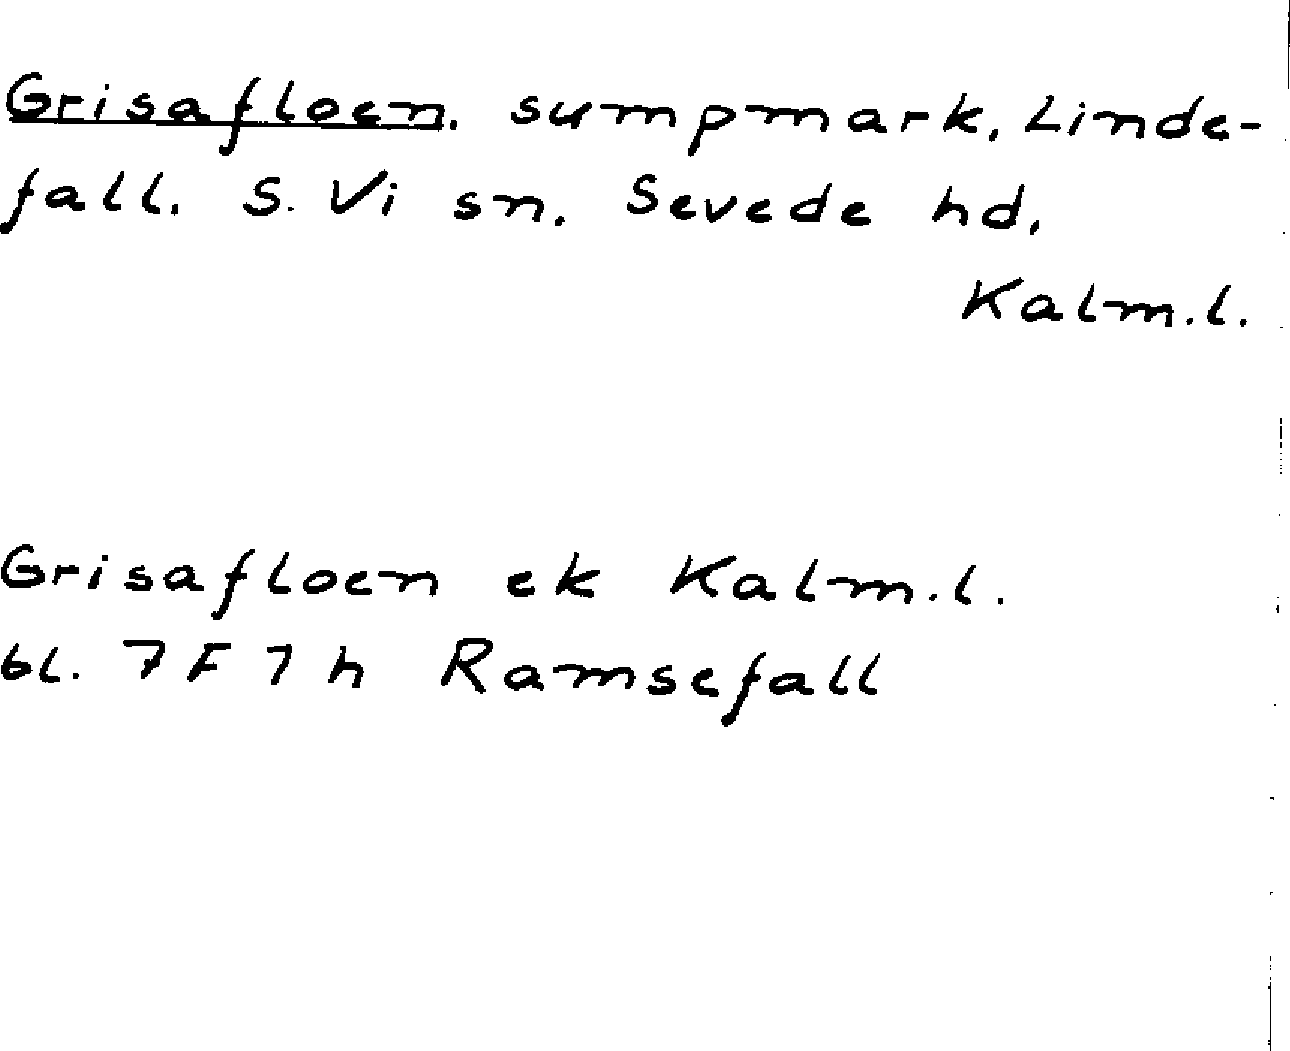 Grisafloen. sumpmark, Linde-
fall. S. Vi sn. Sevede hd,
Kalm.l.
Grisafloen ek Kalm.l.
bl. 7F7h Ramsefall